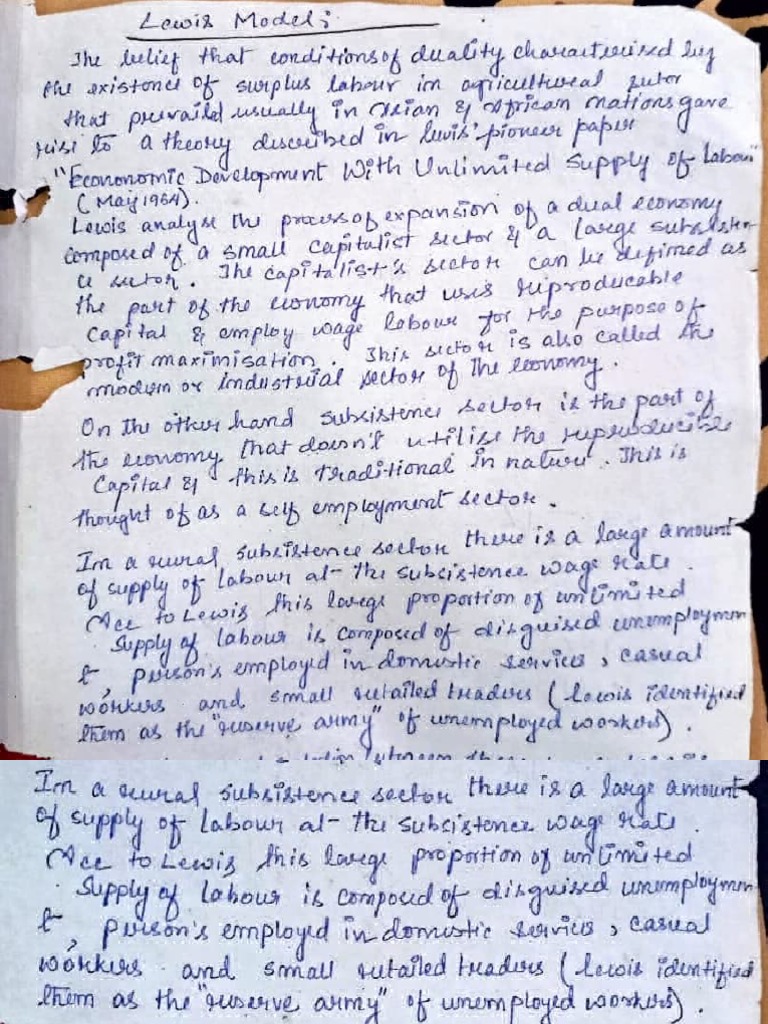 Lewis Model:
The belief that conditions of duality characterised by
the existence of surplus labour in agricultural sector
that prevaild usually in Asian & African nations gave
rise to a theory described in Lewis' pioneer paper
"Econonomic Development With Unlimited Supply of Labour"
(May 1954).
Lewis analyse the process of expansion of a dual economy
composed of a small capitalist sector & a large subsisten
a sector. The capitalist's sector can be defined as
the part of the economy that uses reproducable
capital & employ wage labour for the purpose of
profit maximisation. This sector is also called the
modern or industrial sector of the economy.
On the other hand subsistence sector is the part of
the economy that doesn't utilise the reproducible
Capital & this is traditional in nature. This is
thought of as a self employment sector.
In a rural subsistence sector there is a large amount
of supply of labour at the subsistence wage rate.
Acc to Lewis this large proportion of unlimited
Supply of labour is composed of disguised unemploymen
& person's employed in domestic services, casual
workers and small retailed traders (lewis identified
them as the "reserve army" of unemployed workers).
In a rural subsistence sector there is a large amount
of supply of labour at the subsistence wage rate.
Acc to Lewis this large proportion of unlimited
Supply of labour is composed of disguised unemploymen
& person's employed in domestic services, casual
workers and small retailed traders (lewis identified
them as the "reserve army" of unemployed workers).